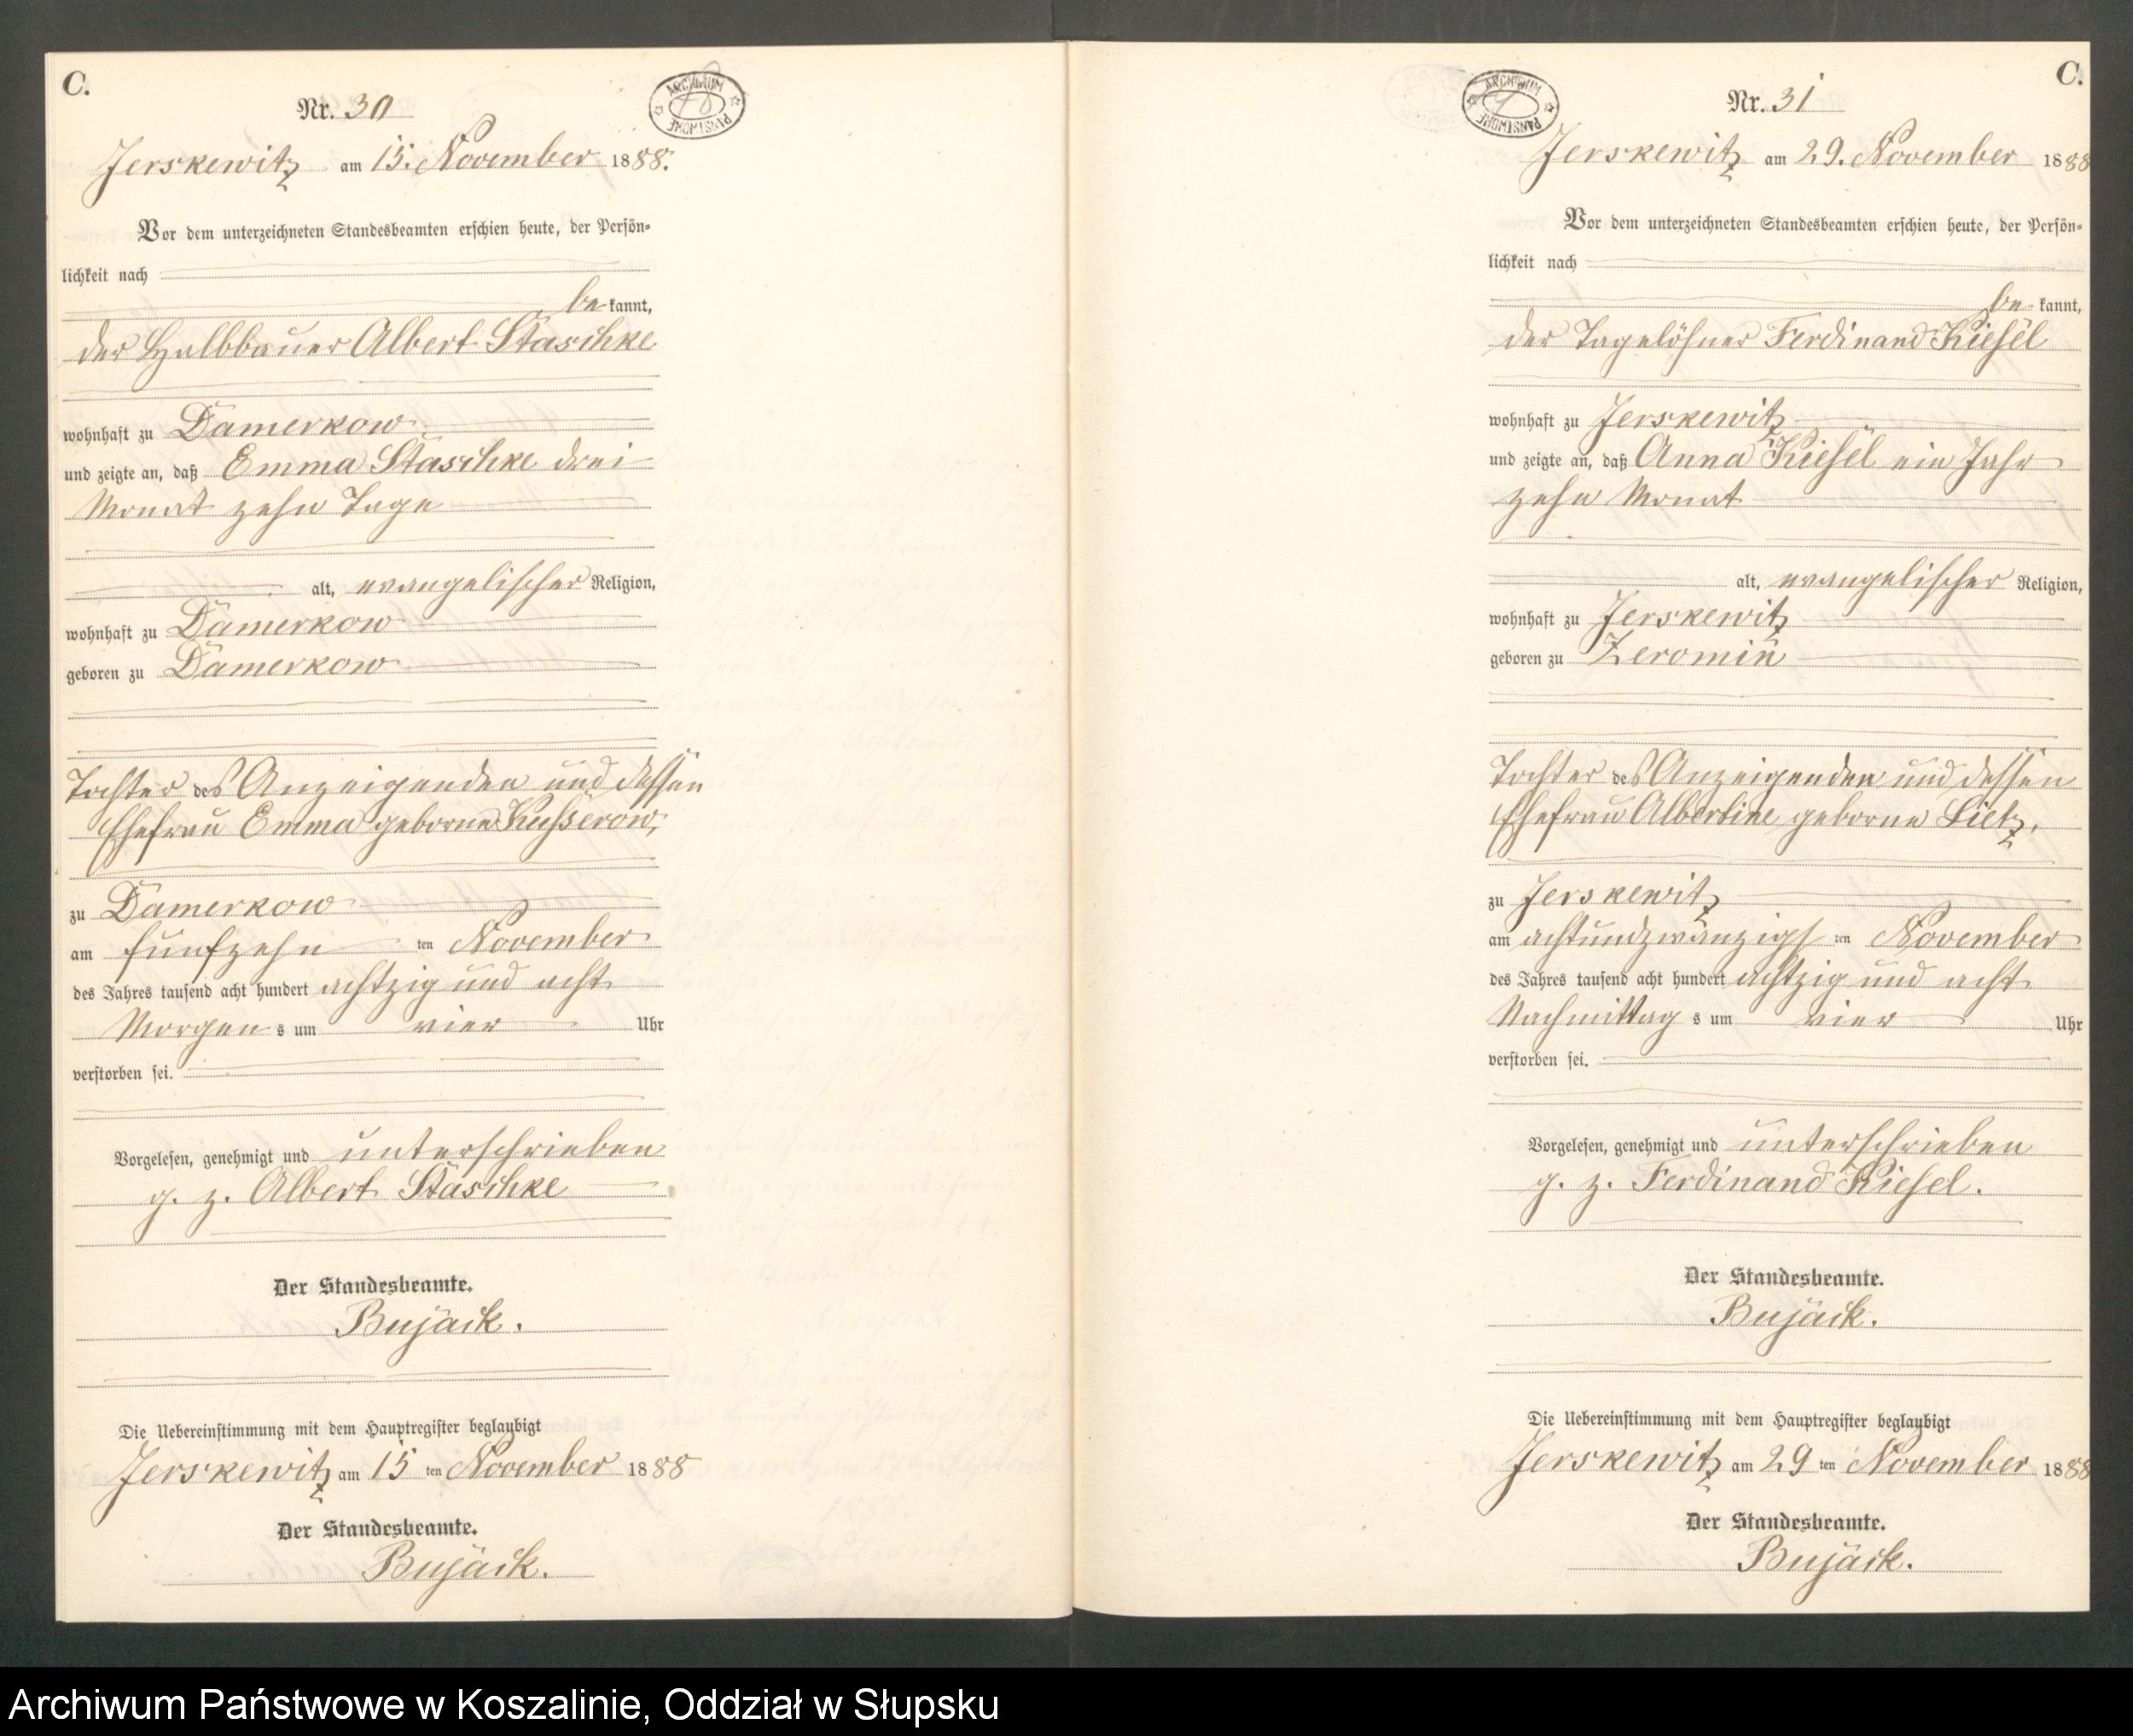 C.
Nr. 30
ARCHIWUM PAŃSTWOWE
Jerskewitz am 15. November 1888.
Vor dem unterzeichneten Standesbeamten erschien heute, der Persön-
lichkeit nach
be kannt,
der Halbbauer Albert Staschke
wohnhaft zu Damerkow
und zeigte an, daß Emma Staschke drei
Monat zehn Tage
alt, evangelischer Religion,
wohnhaft zu Damerkow
geboren zu Damerkow
Tochter des Anzeigenden und dessen
Ehefrau Emma geborne Kusserow,
zu Damerkow
am fünfzehn ten November
des Jahres tausend acht hundert achtzig und acht
Morgen s um vier Uhr
verstorben sei.
Vorgelesen, genehmigt und unterschrieben
g. z. Albert Staschke
Der Standesbeamte.
Bujack.
Die Uebereinstimmung mit dem Hauptregister beglaubigt
Jerskewitz am 15 ten November 1888
Der Standesbeamte.
Bujack.
C.
Nr. 31
ARCHIWUM PAŃSTWOWE
Jerskewitz am 29. November 1888
Vor dem unterzeichneten Standesbeamten erschien heute, der Persön-
lichkeit nach
be kannt,
der Tagelöhner Ferdinand Kiesel
wohnhaft zu Jerskewitz
und zeigte an, daß Anna Kiesel ein Jahr
zehn Monat
alt, evangelischer Religion,
wohnhaft zu Jerskewitz
geboren zu Zeromin
Tochter des Anzeigenden und dessen
Ehefrau Albertine geborne Lietz,
zu Jerskewitz
am achtundzwanzigs ten November
des Jahres tausend acht hundert achtzig und acht
Nachmittag s um vier Uhr
verstorben sei.
Vorgelesen, genehmigt und unterschrieben
g. z. Ferdinand Kiesel.
Der Standesbeamte.
Bujack.
Die Uebereinstimmung mit dem Hauptregister beglaubigt
Jerskewitz am 29 ten November 1888
Der Standesbeamte.
Bujack.
Archiwum Państwowe w Koszalinie, Oddział w Słupsku